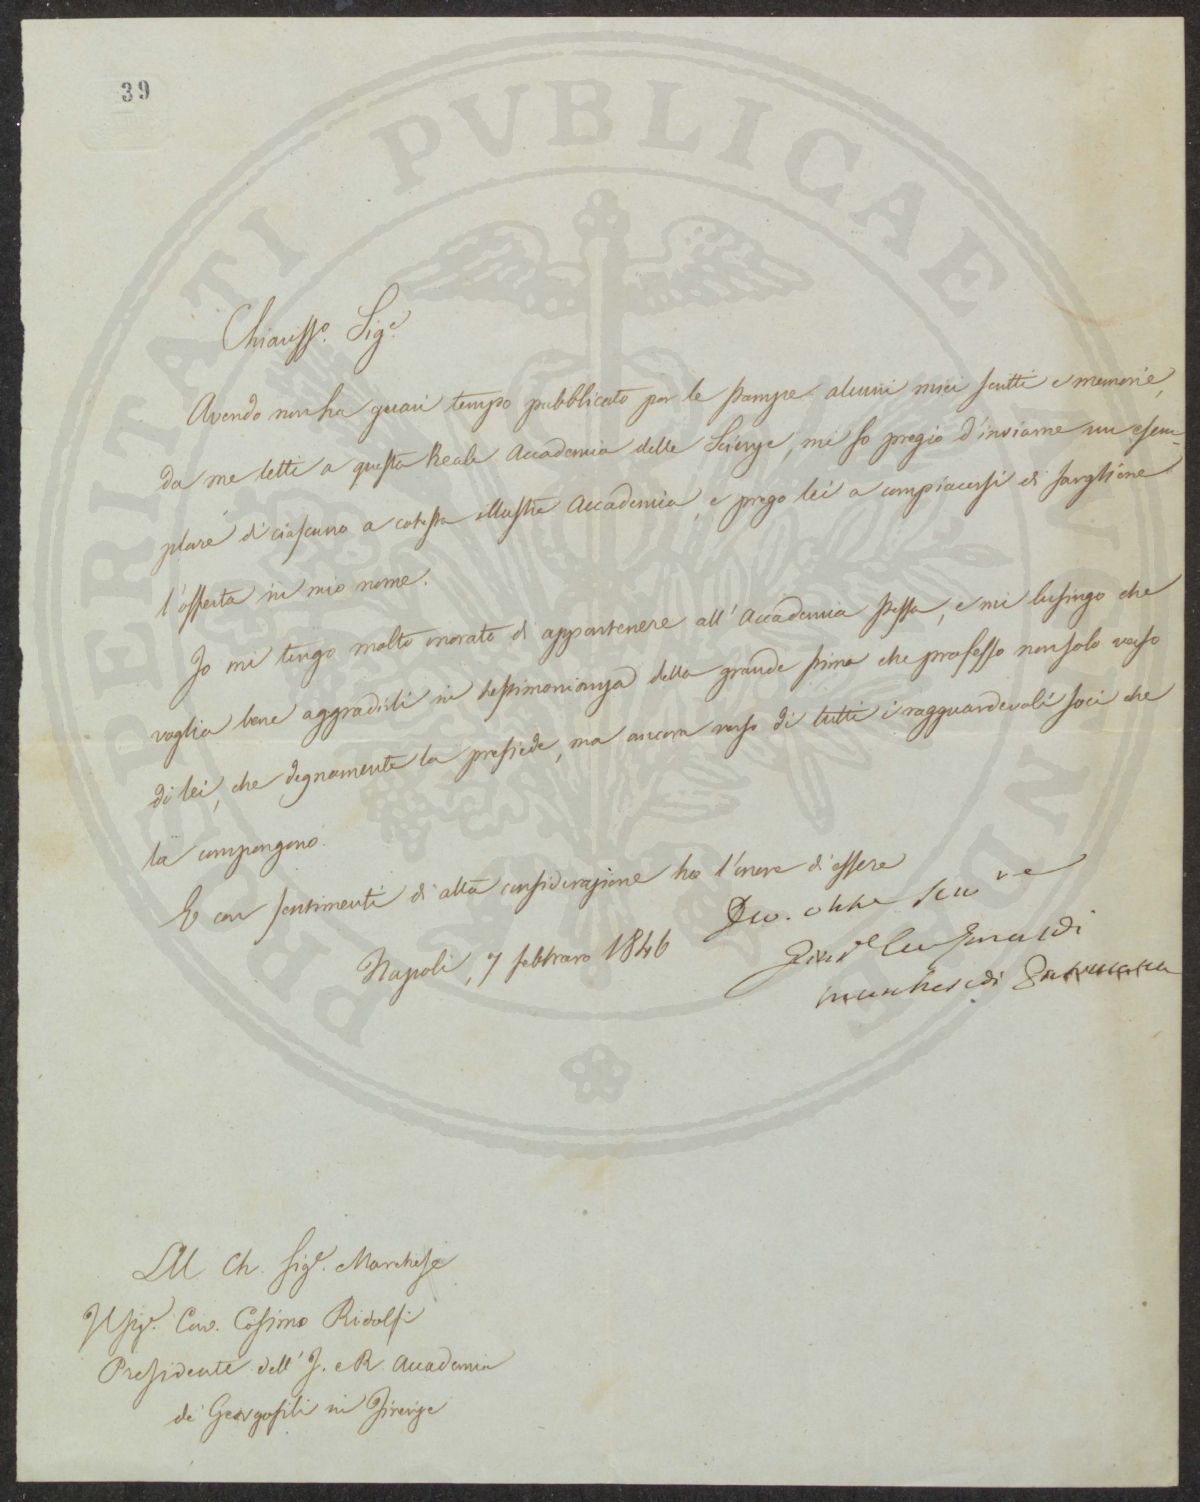 39
PROSPERITATI PVBLICAE AVGENDAE
Chiariss.º Sig.e
Avendo non ha guari tempo pubblicato per le stampe alcuni miei scritti e memorie,
da me letti a questa Reale Accademia delle Scienze, mi fo pregio d'inviarne un esem-
plare di ciascuno a cotesta illustre Accademia, e prego lei a compiacersi di fargliene
l'offerta in mio nome.
Io mi tengo molto onorato di appartenere all'Accademia stessa, e mi lusingo che
voglia bene aggradirli in testimonianza della grande stima che professo non solo verso
di lei, che degnamente la presiede, ma ancora verso di tutti i ragguardevoli soci che
la compongono.
E con sentimenti di alta considerazione ho l'onore di essere
Napoli, 7 febbraro 1846
marchese di
Al Ch. Sig.e Marchese
Il Sig.r Cav. Cosimo Ridolfi
Presidente dell'I. e R. Accademia
de' Georgofili in Firenze